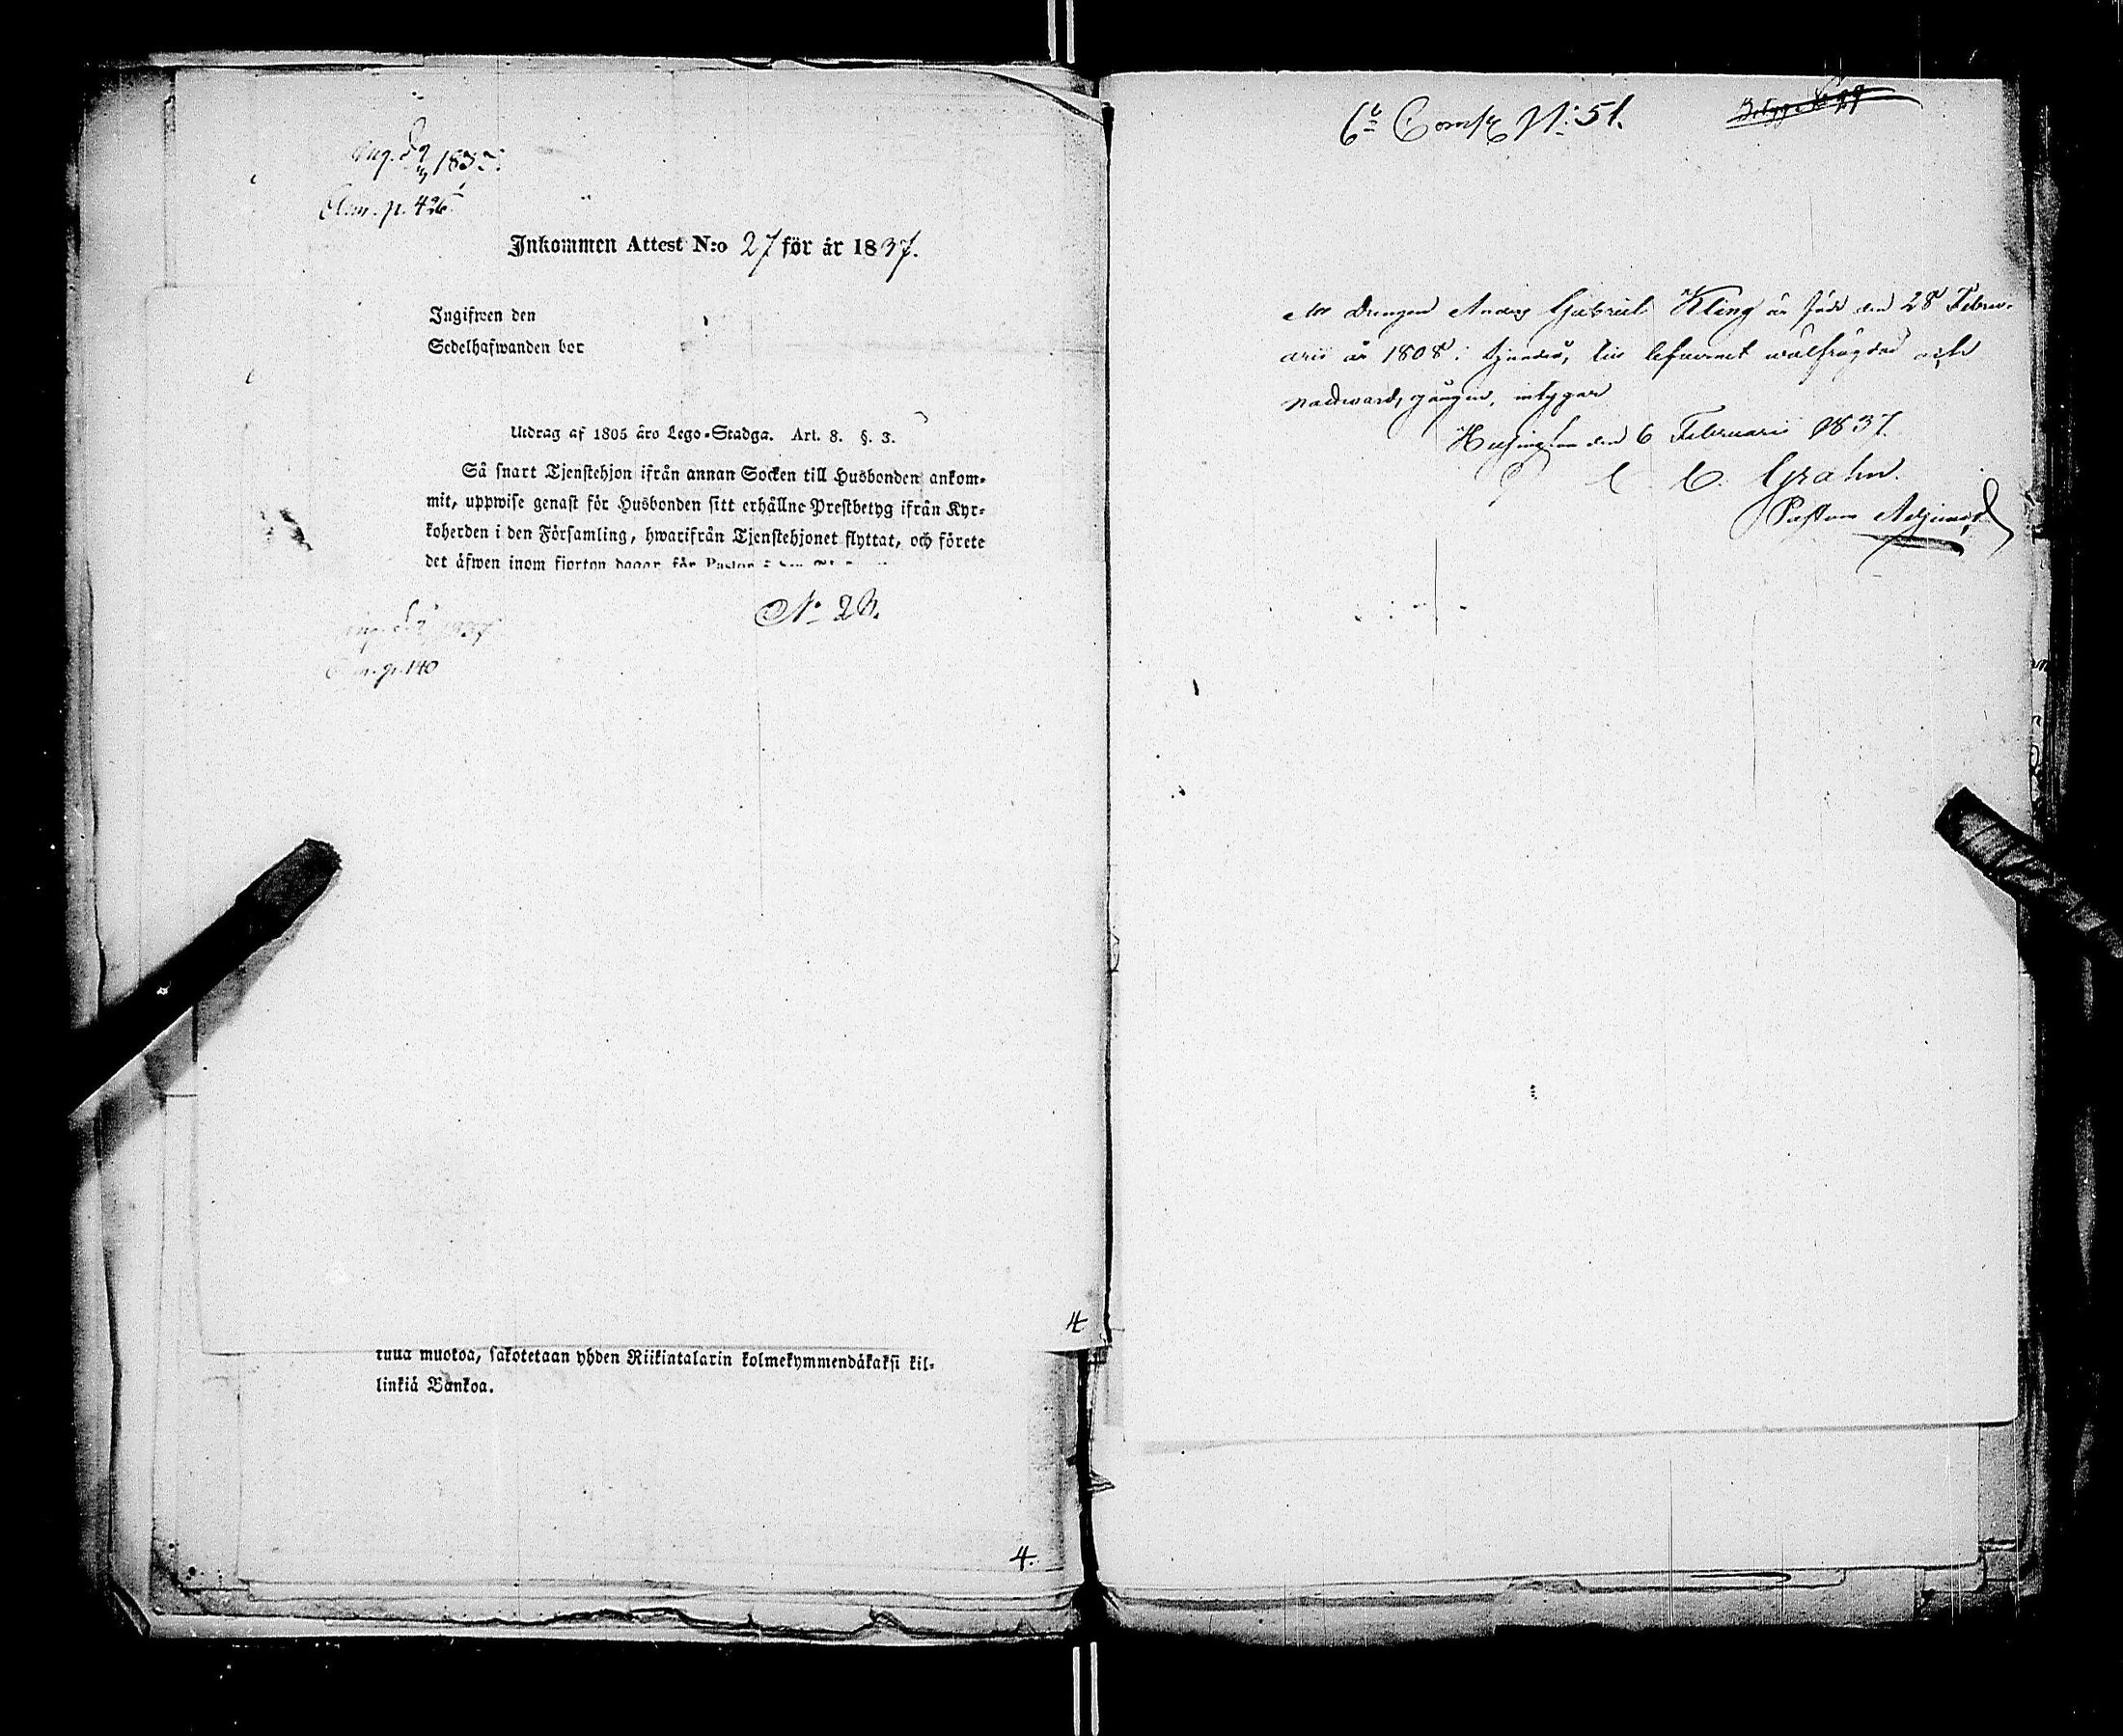 Ing. d. 9/3 1837.
Elem. p. 426.
Inkommen Attest N:o 27 för år 1837.
Ingifwen den
Sedelhafwanden bor
Utdrag af 1805 års Lego-Stadga. Art. 8. §. 3.
Så snart Tjenstehjon ifrån annan Socken till Husbonden ankom-
mit, uppwise genast för Husbonden sitt erhållne Prestbetyg ifrån Kyr-
koherden i den Församling, hwarifrån Tjenstehjonet flyttat, och förete
det äfwen inom fjorton dagar för Pastor i
N:o 28.
1837
p. 140
4
tuua muotoa, sakotetaan yhden Riikintalarin kolmekymmendäkaksi kil-
linkiä Bankoa.
4.
N: 51.
Att Drengen Anders Gabriel Kling är född den 28 Febru-
arii år 1808, till lefwernet wälfrägdad och
nattwardsgången, intygar
Helsingfors den 6 Februarii 1837.
C. Grahn.
Pastors Adjunct